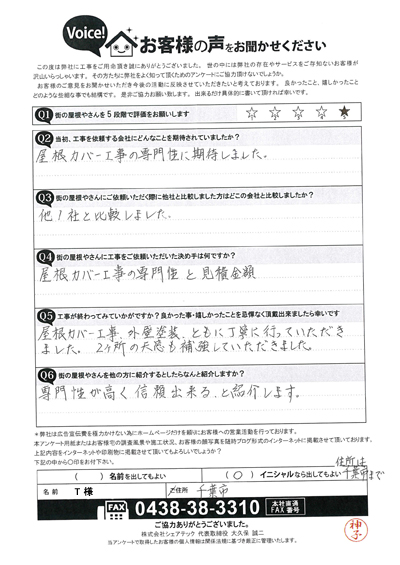 Voice!
お客様の声をお聞かせください
この度は弊社に工事をご用命頂き誠にありがとうございました。世の中には弊社の存在やサービスをご存知ないお客様が
沢山いらっしゃいます。その方たちに弊社をよく知って頂くためのアンケートにご協力頂けないでしょうか。
お客様のご意見をお聞かせいただき今後の活動に反映させていただきたいと考えております。良かったこと、嬉しかったこと
どのような些細な事でも結構です。是非ご協力お願い致します。出来るだけ具体的に書いて頂ければ幸いです。
Q1 街の屋根やさんを5段階で評価をお願いします
☆ ☆ ☆ ☆ ★
Q2 当初、工事を依頼する会社にどんなことを期待されていましたか?
屋根カバー工事の専門性に期待しました。
Q3 街の屋根やさんにご依頼いただく際に他社と比較しました方はどこの会社と比較しましたか?
他1社と比較しました。
Q4 街の屋根やさんに工事をご依頼いただいた決め手は何ですか?
屋根カバー工事の専門性と見積金額
Q5 工事が終わってみていかがですか?良かった事・嬉しかったことを忌憚なく頂戴出来ましたら幸いです
屋根カバー工事、外壁塗装、ともに丁寧に行っていただき
ました。2ヶ所の天窓も補強していただきました。
Q6 街の屋根やさんを他の方に紹介するとしたらなんと紹介しますか?
専門性が高く信頼出来る、と紹介します。
*弊社は広告宣伝費を極力かけない為にホームページだけを頼りにお客様への営業活動を行っております。
本アンケート用紙またはお客様宅の調査風景や施工状況、お客様の顔写真を随時ブログ形式のインターネットに掲載させて頂いております。
上記内容をインターネットや印刷物に掲載させて頂いてもよろしいでしょうか?
下記の中から〇印をお付け下さい。
住所は
( ) 名前を出してもよい (〇) イニシャルなら出してもよい 千葉市まで
名前 T様 ご住所 千葉市
FAX 0438-38-3310 本社直通 FAX 番号
ご協力ありがとうございました。
株式会社シェアテック 代表取締役 大久保 誠二
当アンケートで取得したお客様の個人情報は関係法規に基づき厳正に管理いたします。